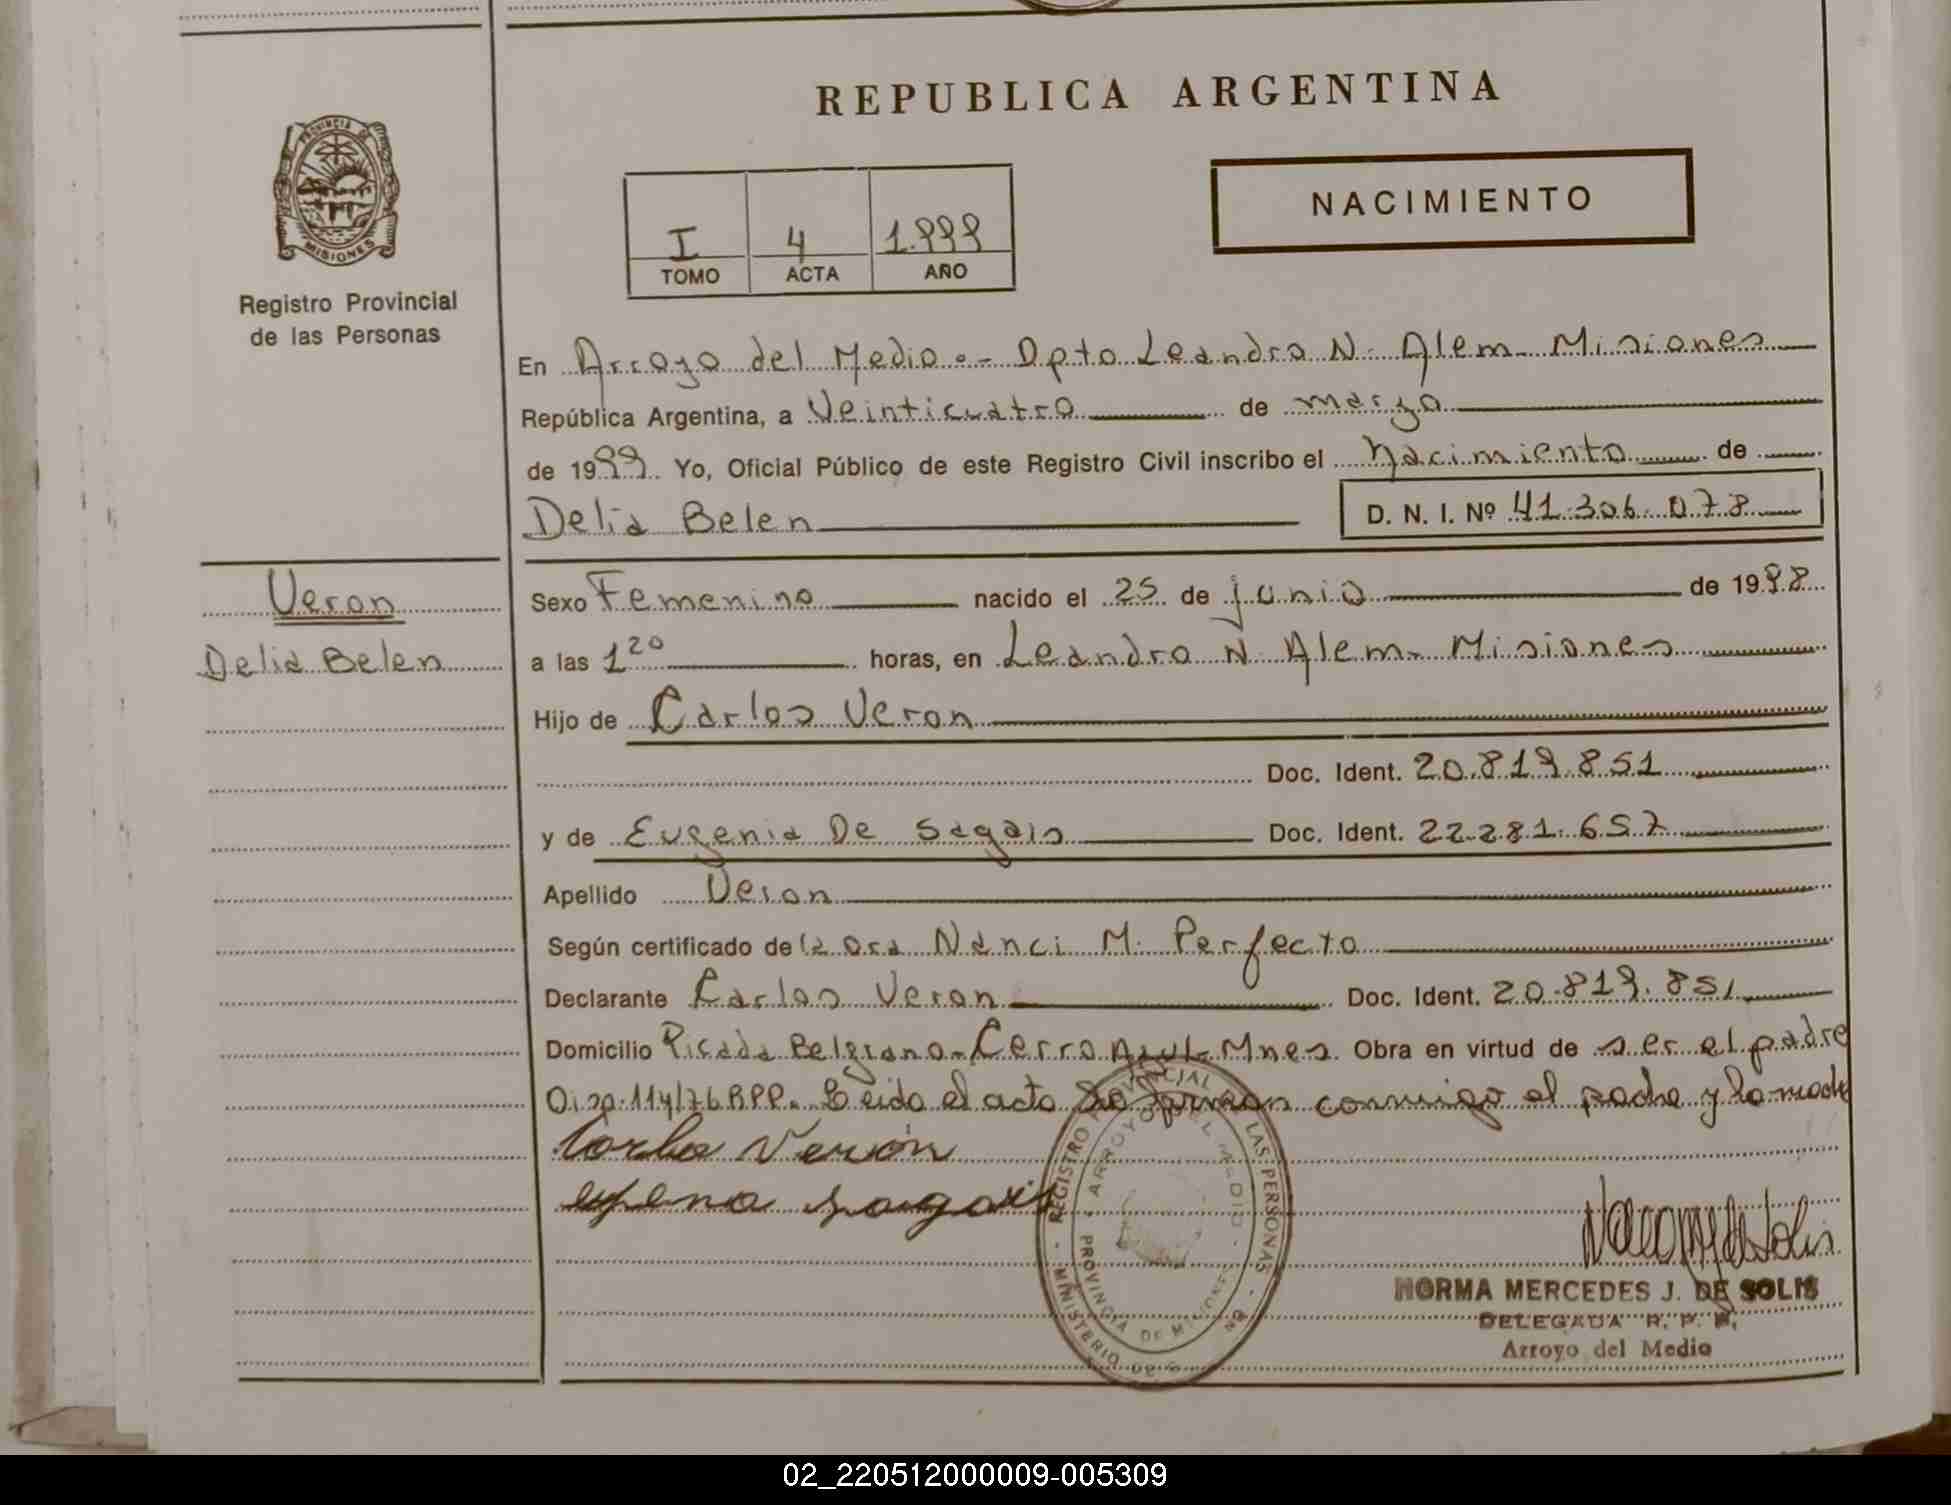 REPUBLICA ARGENTINA
PROVINCIA DE
MISIONES
Registro Provincial
de las Personas
NACIMIENTO
I 4 1.999
TOMO ACTA AÑO
En Arroyo del Medio.- Dpto Leandro N. Alem - Misiones
República Argentina, a Veinticuatro de marzo
de 1999 Yo, Oficial Público de este Registro Civil inscribo el Nacimiento de
Delia Belen D. N. I. Nº 41.306.078
Veron
Delia Belen
Sexo Femenino nacido el 25 de junio de 1998
a las 1 20 horas, en Leandro N. Alem - Misiones
Hijo de Carlos Veron
Doc. Ident. 20.819.851
y de Eugenia De Sagais Doc. Ident. 22.281.657
Apellido Veron
Según certificado de la Dra Nanci M. Perfecto
Declarante Carlos Veron Doc. Ident. 20.819.851
Domicilio Picada Belgrano - Cerro Azul - Mnes. Obra en virtud de ser el padre
Disp. 114/76 RPP. Leida el acta la firman conmigo el padre y la madre
Carlos Verón
sagais
REGISTRO PROVINCIAL DE LAS PERSONAS
MINISTERIO DE G
ARROYO DEL MEDIO
PROVINCIA DE MISIONES
NORMA MERCEDES J. DE SOLIS
DELEGADA R. P. P.
Arroyo del Medio
02_220512000009-005309